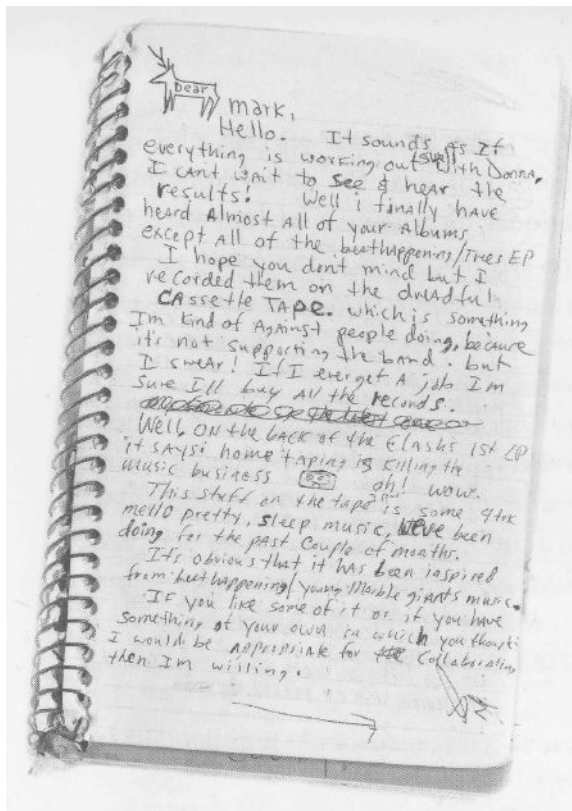 dear
mark,
Hello. It sounds as if
everything is working out swell with Donna.
I cant wait to see & hear the
results! Well i finally have
heard Almost All of your Albums
except All of the beathappening/Trees EP
I hope you don't mind but I
recorded them on the dreadful
CAssette TApe. which is something
I'm kind of Against people doing, because
it's not supporting the band. but
I swear! If I ever get A job I'm
sure I'll buy All the records.
Well, ON the bAck of the Clash's 1st LP
it sAys: home tAping is killing the
music business oh! wow.
This stuff on the tape is some 4trk
mello pretty, sleep music, We've been
doing for the pAst Couple of months.
It's obvious that it hAs been inspired
from beathappening/young Marble giants music.
If you like some of it or if you hAve
something of your own in which you thought
I would be Appropriate for Collaborating
then Im willing.